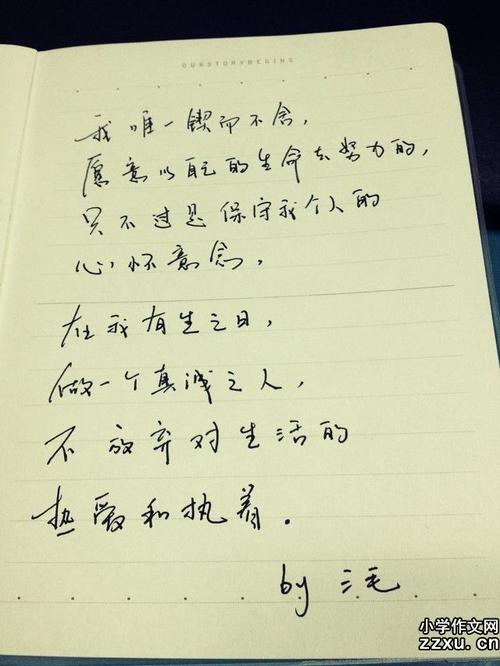 OURSTORYBEGINS
我唯一锲而不舍,
愿意以自己的生命去努力的,
只不过是保守我个人的
心怀意念,
在我有生之日,
做一个真诚之人,
不放弃对生活的
热爱和执着。
by 三毛
小学作文网
zzxu.cn